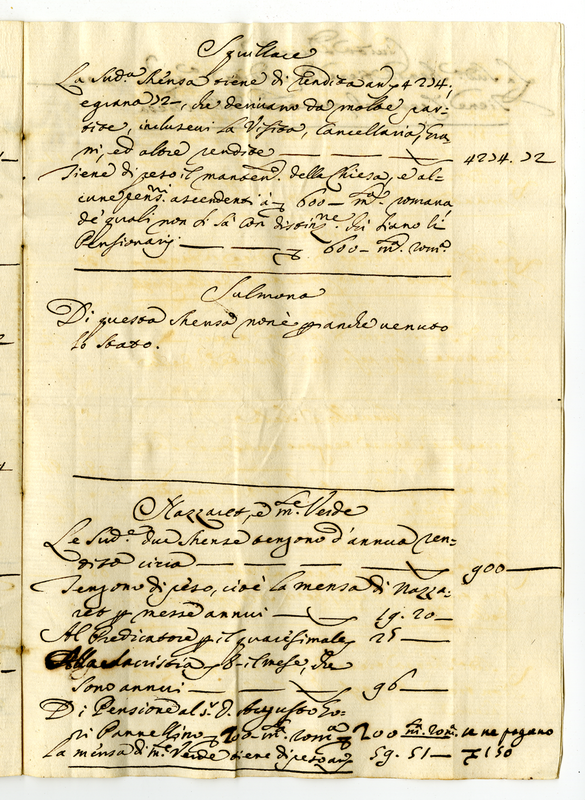 Squillace
La Sud.a Mensa tiene di rendita an. 4254,
e grana 52-, che derivano da molte par=
tite, inclusevi La Visita, Cancellaria, Gra=
ni, ed altre rendite — 4254. 52
Tiene di peso il manten. della Chiesa, e al-
cune pens.ni ascendenti à 600- m.ta romana
de quali non si sà con distinz.ne chi siano li
Pensionarij — 600- m.ta rom.a
Sulmona
Di questa Mensa non è p anche venuto
lo stato.
Nazzaret, e M.te Verde
Le Sud.e due Mense tengono d'annua ren=
dita circa — 900—
Tengono di peso, cioè La mensa di Nazza=
ret p messe annui — 19. 20—
Al Predicatore p il quaresimale 25—
Alla Sacristia 8- il mese, che
sono annui — 96—
Di Pensione al S.r D. Augusto
ri Pannellino 200- m.ta rom.a 200 m. rom. se ne pagano
La mensa di M.te Verde tiene di peso an. 59. 51— 150